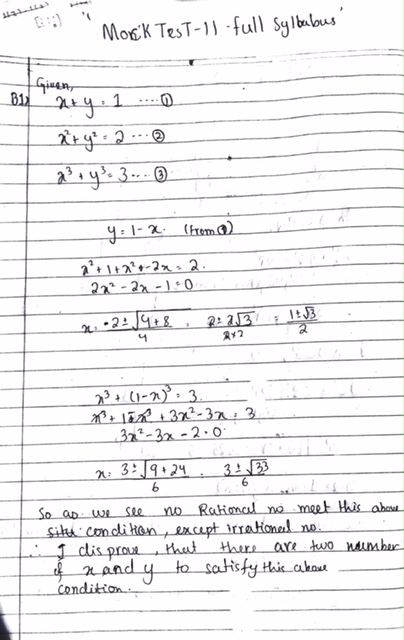 Mock Test-11 - full Syllbabus'
Given,
B1) x + y = 1 .... ①
x² + y² = 2 ... ②
x³ + y³ = 3 ... ③
y = 1 - x. (from ①)
x² + 1 + x² + -2x = 2.
2x² - 2x - 1 = 0
x = -2 ± √4+8 / 4 = 2 ± 2√3 / 2×2 = 1 ± √3 / 2
x³ + (1-x)³ = 3.
x³ + 1 - x³ + 3x² - 3x = 3
3x² - 3x - 2 = 0
x = 3 ± √9+24 / 6 = 3 ± √33 / 6
So as we see no Rational no meet this above
condition, except irrational no.
∴ I disprove, that there are two number
of x and y to satisfy this above
condition.